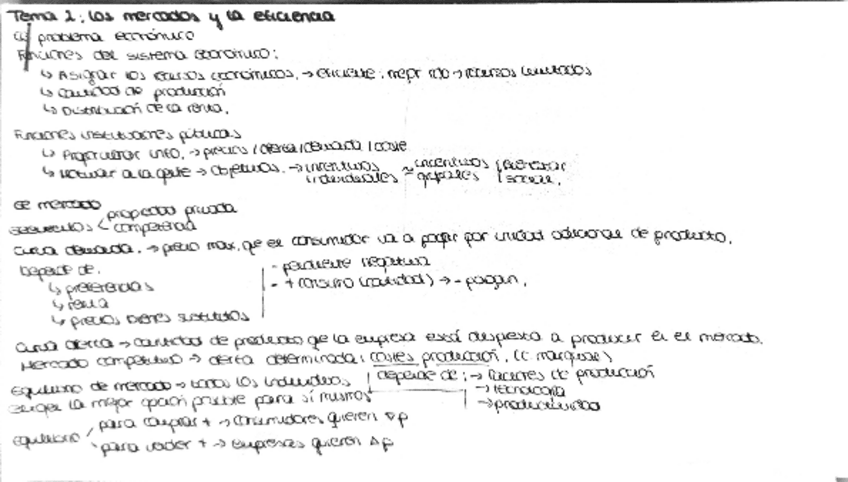 Tema 1: Los mercados y la eficiencia
El problema económico
Funciones del sistema económico:
↳ Asignar los recursos económicos. → eficiente: mejor rdo → recursos limitados
↳ cantidad de producción
↳ Distribución de la renta.
Funciones instituciones públicas
↳ Proporcionar info. → precios / oferta / demanda / coste
↳ Motivar a la gente → objetivos. → incentivos individuales ≈ incentivos grupales / bienestar / social.
de mercado
requisitos < propiedad privada
competencia
Curva demanda. → precio max. qe el consumidor va a pagar por unidad adicional de producto.
Depende de.
↳ preferencias
↳ renta
↳ precios bienes sustitutos
- pendiente negativa
- + consumo (cantidad) → - pagan.
Curva oferta → cantidad de producto qe la empresa está dispuesta a producir en el mercado.
Mercado competitivo → oferta determinada: costes producción. (c marginal)
Equilibrio de mercado → todos los individuos
escogen la mejor opción posible para sí mismos
depende de: → factores de producción
→ tecnología
→ productividad
equilibrio / para comprar + → consumidores quieren ▽p
para vender + → empresas quieren △p